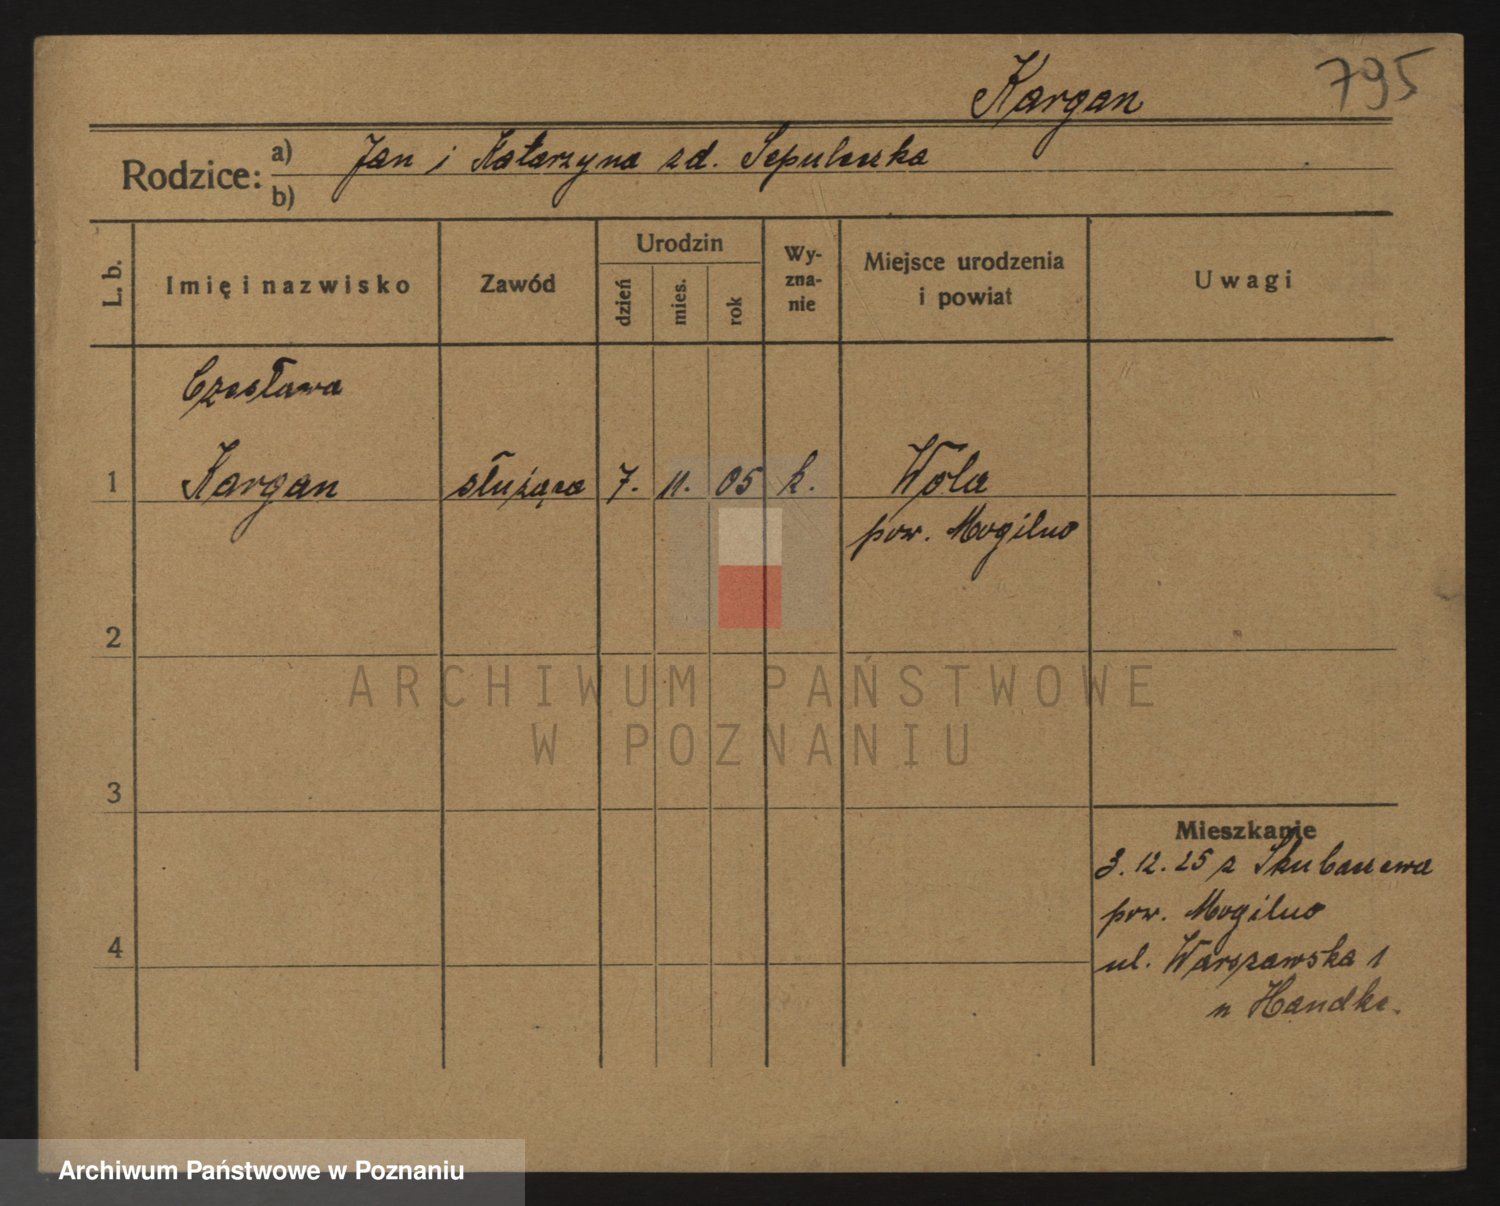 795
Kargan
Rodzice: a) Jan i Katarzyna zd. Sepuleczka
b)
L. b. Imię i nazwisko Zawód Urodzin dzień mies. rok Wy-zna-nie Miejsce urodzenia i powiat Uwagi
Czesława
1 Kargan służąca 7. 11. 05 k. Wola
pow. Mogilno
2
ARCHIWUM PAŃSTWOWE
W POZNANIU
3
Mieszkanie
3.12.25 z
pow. Mogilno
4
ul. Warszawska 1
u Handke.
Archiwum Państwowe w Poznaniu